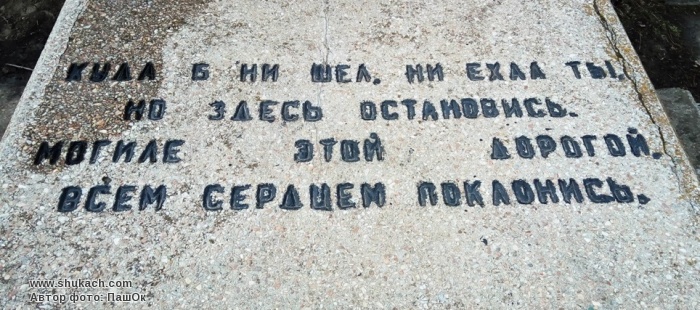 КУДА Б НИ ШЕЛ, НИ ЕХАЛ ТЫ!,
НО ЗДЕСЬ ОСТАНОВИСЬ.
МОГИЛЕ ЭТОЙ ДОРОГОЙ,
ВСЕМ СЕРДЦЕМ ПОКЛОНИСЬ.
www.shukach.com
Автор фото: ПашОк